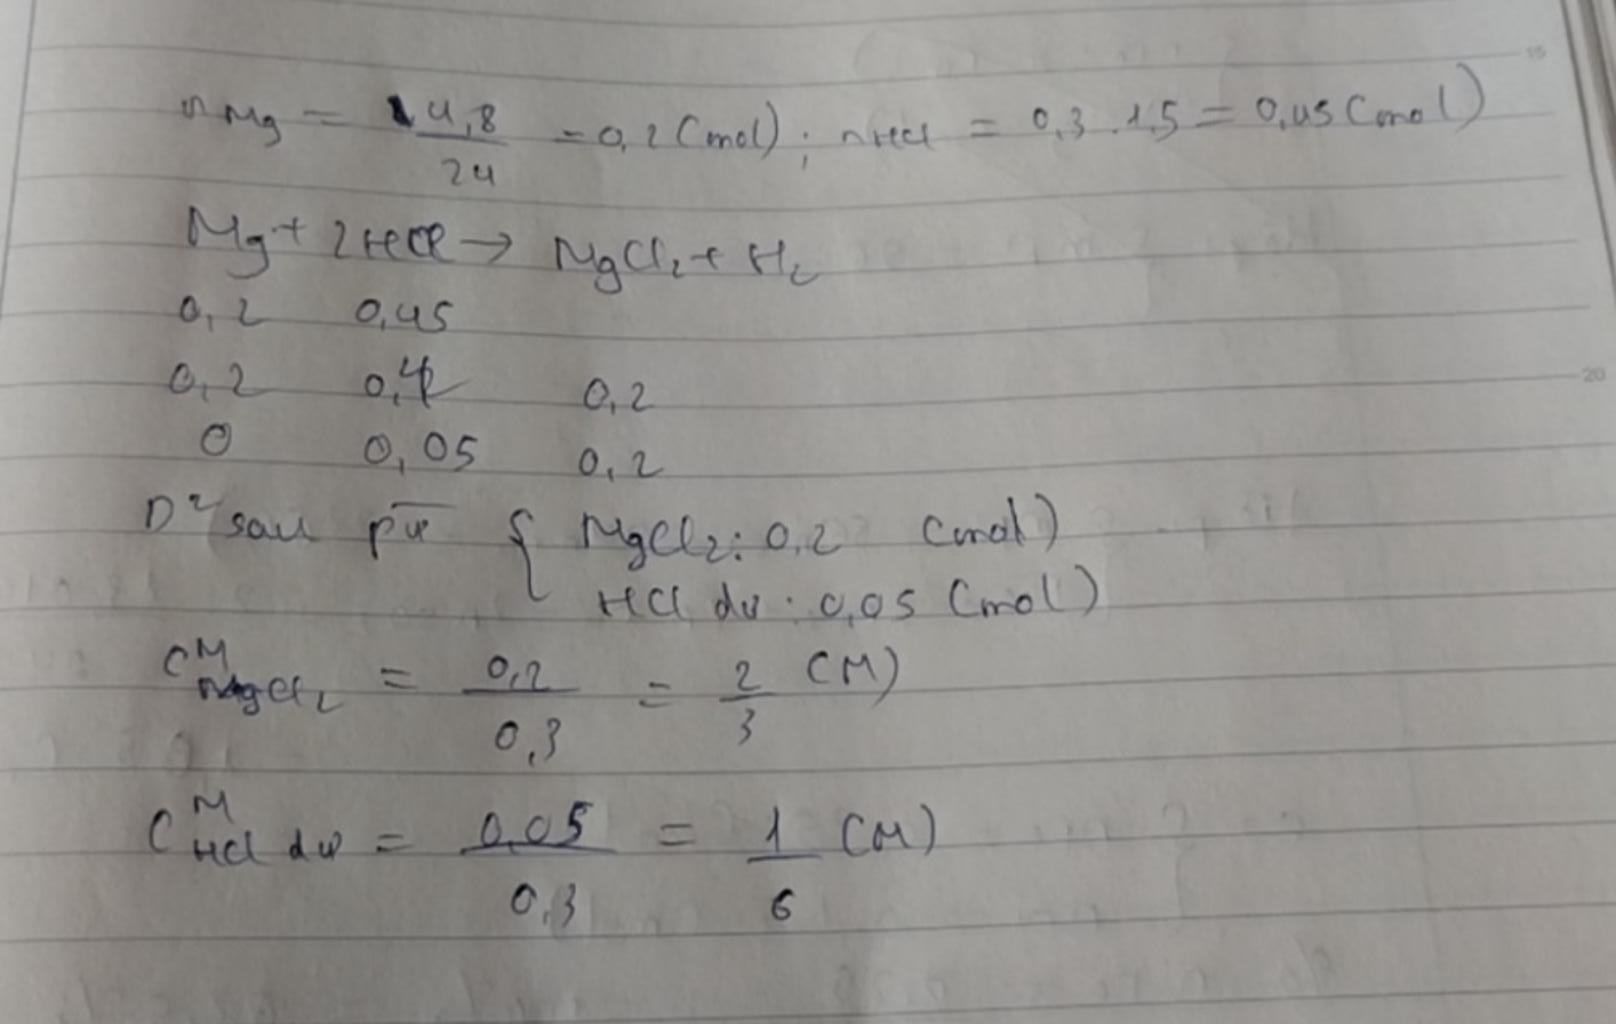 nMg = 4,8/24 = 0,2 (mol); nHCl = 0,3 . 1,5 = 0,45 (mol)
Mg + 2HCl → MgCl₂ + H₂
0,2 0,45
0,2 0,4 0,2
0 0,05 0,2
D² sau pư { MgCl₂: 0,2 (mol)
HCl dư: 0,05 (mol)
CM MgCl₂ = 0,2/0,3 = 2/3 (M)
CM HCl dư = 0,05/0,3 = 1/6 (M)
15
20